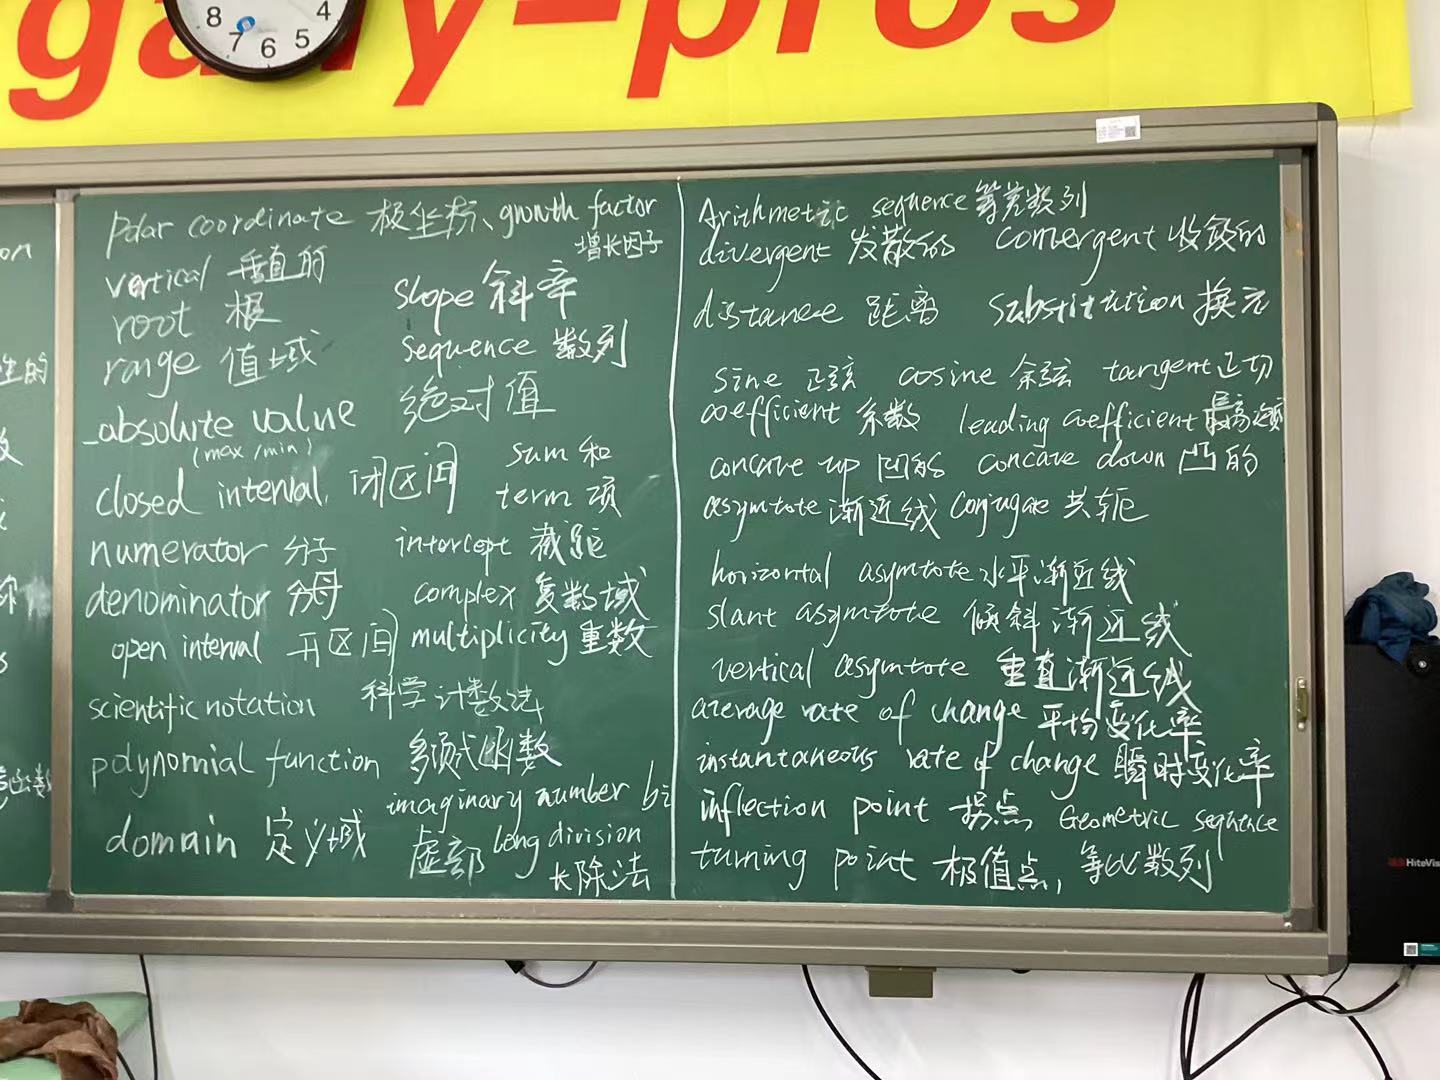 8 7 6 5 4
gary-pros
polar coordinate 极坐标、growth factor
增长因子
vertical 垂直的
root 根
slope 斜率
range 值域
sequence 数列
absolute value 绝对值
(max/min)
closed interval. 闭区间
sum 和
term 项
numerator 分子
intercept 截距
denominator 分母
complex 复数域
open interval 开区间
multiplicity 重数
scientific notation 科学计数法
polynomial function 多项式函数
imaginary number bi
domain 定义域
虚部 long division
长除法
Arithmetic sequence 等差数列
divergent 发散的 convergent 收敛的
distance 距离 substitution 换元
sine 正弦 cosine 余弦 tangent 正切
coefficient 系数 leading coefficient 最高次项
concave up 凹的 concave down 凸的
asymtote 渐近线 Conjugae 共轭
horizontal asymtote 水平渐近线
slant asymtote 倾斜渐近线
vertical asymtote 垂直渐近线
average rate of change 平均变化率
instantaneous rate of change 瞬时变化率
inflection point 拐点 Geometric sequence
turning point 极值点, 等比数列
on
数
HiteVis